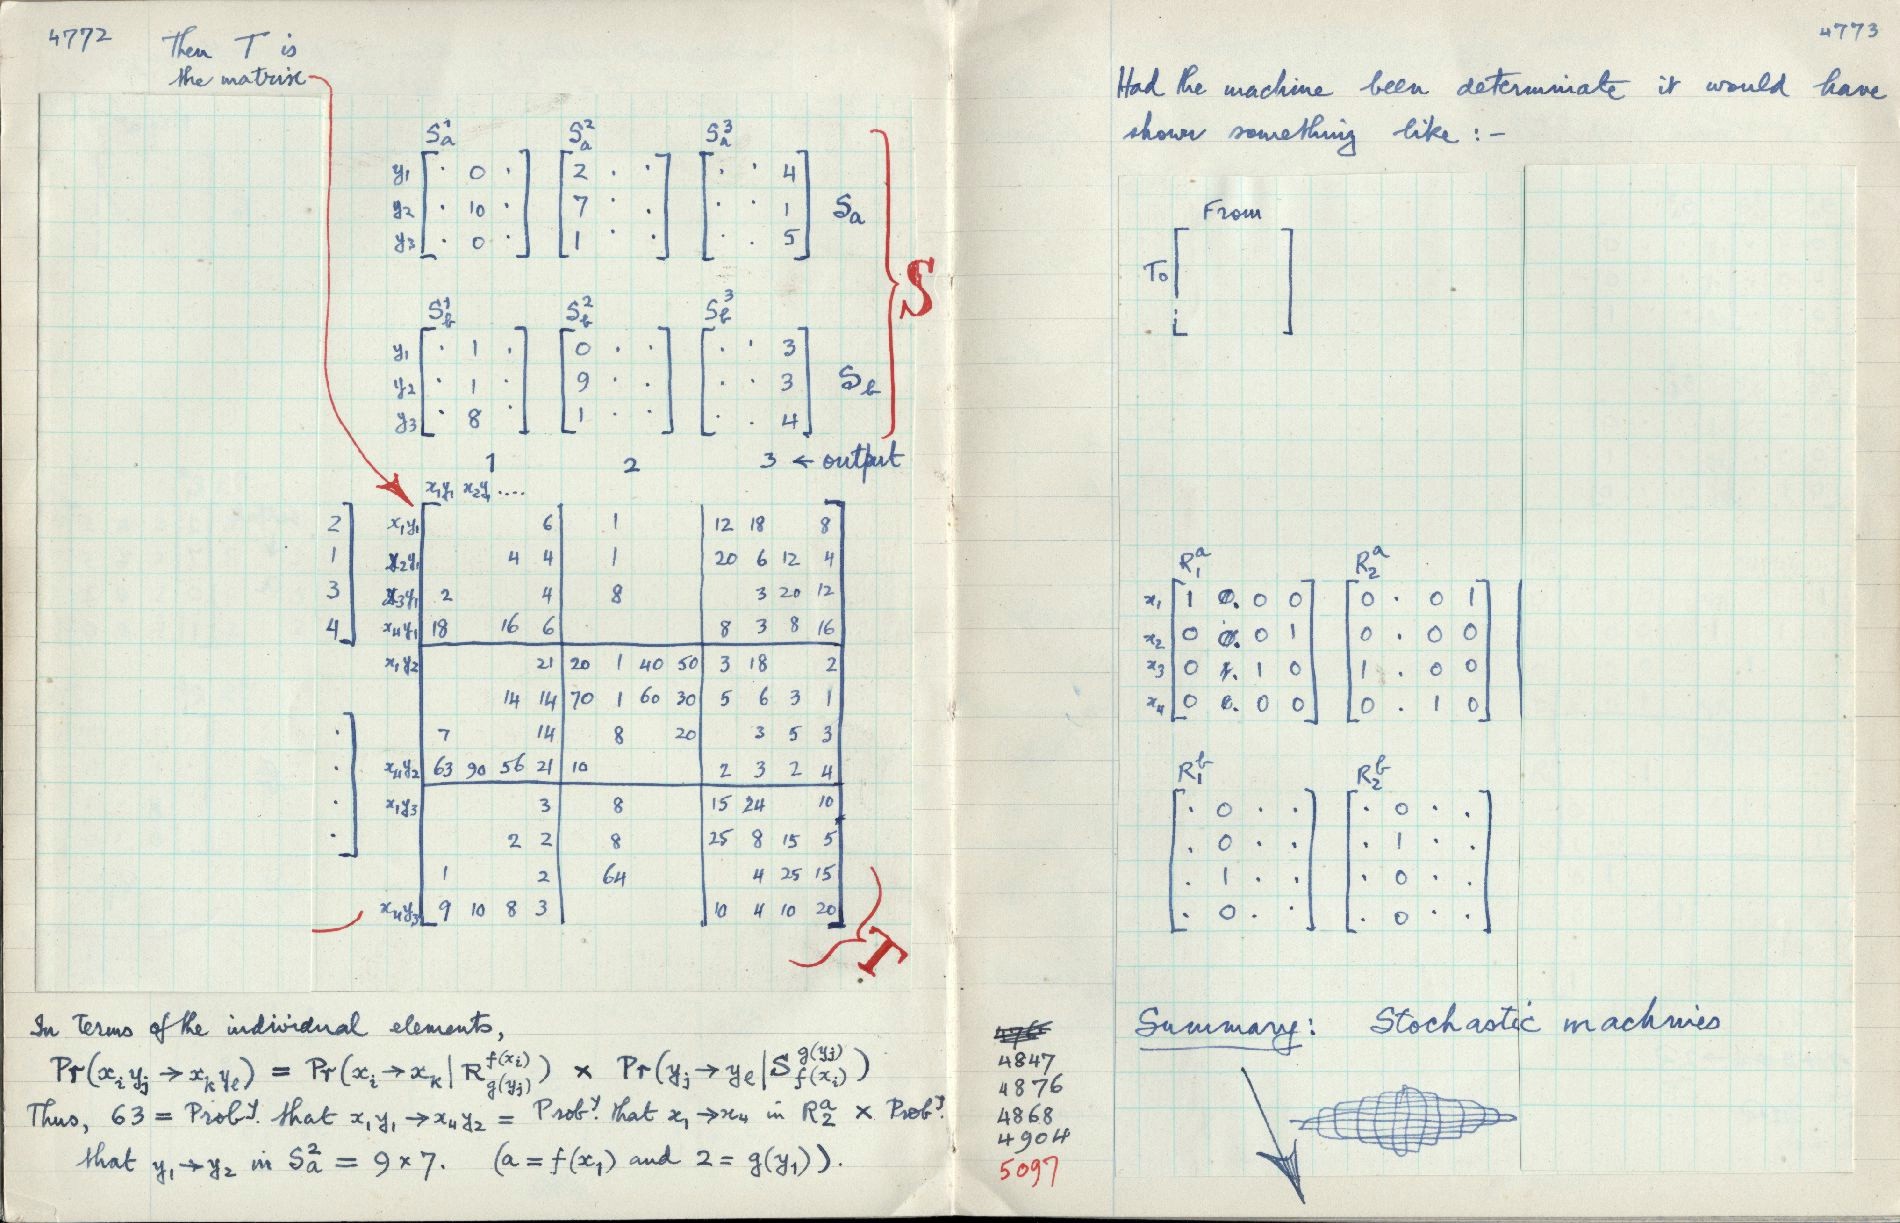 4772
Then T is
the matrix
S¹ₐ S²ₐ S³ₐ
y₁ [ · 0 · ] [ 2 · · ] [ · · 4 ]
y₂ [ · 10 · ] [ 7 · · ] [ · · 1 ] Sₐ
y₃ [ · 0 · ] [ 1 · · ] [ · · 5 ]
S
S¹b S²b S³b
y₁ [ · 1 · ] [ 0 · · ] [ · · 3 ]
y₂ [ · 1 · ] [ 9 · · ] [ · · 3 ] Sb
y₃ [ · 8 · ] [ 1 · · ] [ · · 4 ]
1 2 3 ← output
x₁y₁ x₂y₁ ....
2 x₁y₁ 6 1 12 18 8
1 x₂y₁ 4 4 1 20 6 12 4
3 x₃y₁ 2 4 8 3 20 12
4 x₄y₁ 18 16 6 8 3 8 16
x₁y₂ 21 20 1 40 50 3 18 2
14 14 70 1 60 30 5 6 3 1
· 7 14 8 20 3 5 3
· x₄y₂ 63 90 56 21 10 2 3 2 4
· x₁y₃ 3 8 15 24 10
· 2 2 8 25 8 15 5
1 2 64 4 25 15
x₄y₃ 9 10 8 3 10 4 10 20
T
In terms of the individual elements,
Pr(xᵢyⱼ → xₖyₑ) = Pr(xᵢ → xₖ | R^f(xᵢ)_g(yⱼ)) × Pr(yⱼ → yₑ | S^g(yⱼ)_f(xᵢ))
Thus, 63 = Probʸ. that x₁y₁ → x₄y₂ = Probʸ. that x₁ → x₄ in R₂ᵃ × Probʸ.
that y₁ → y₂ in Sₐ² = 9 × 7. (a = f(x₁) and 2 = g(y₁)).
4847
4876
4868
4904
5097
4773
Had the machine been determinate it would have
shown something like :-
From
To [ ]
R₁ᵃ R₂ᵃ
x₁ [ 1 · 0 0 ] [ 0 · 0 1 ]
x₂ [ 0 · 0 1 ] [ 0 · 0 0 ]
x₃ [ 0 · 1 0 ] [ 1 · 0 0 ]
x₄ [ 0 · 0 0 ] [ 0 · 1 0 ]
R₁ᵇ R₂ᵇ
[ · 0 · · ] [ · 0 · · ]
[ · 0 · · ] [ · 1 · · ]
[ · 1 · · ] [ · 0 · · ]
[ · 0 · · ] [ · 0 · · ]
Summary: Stochastic machines